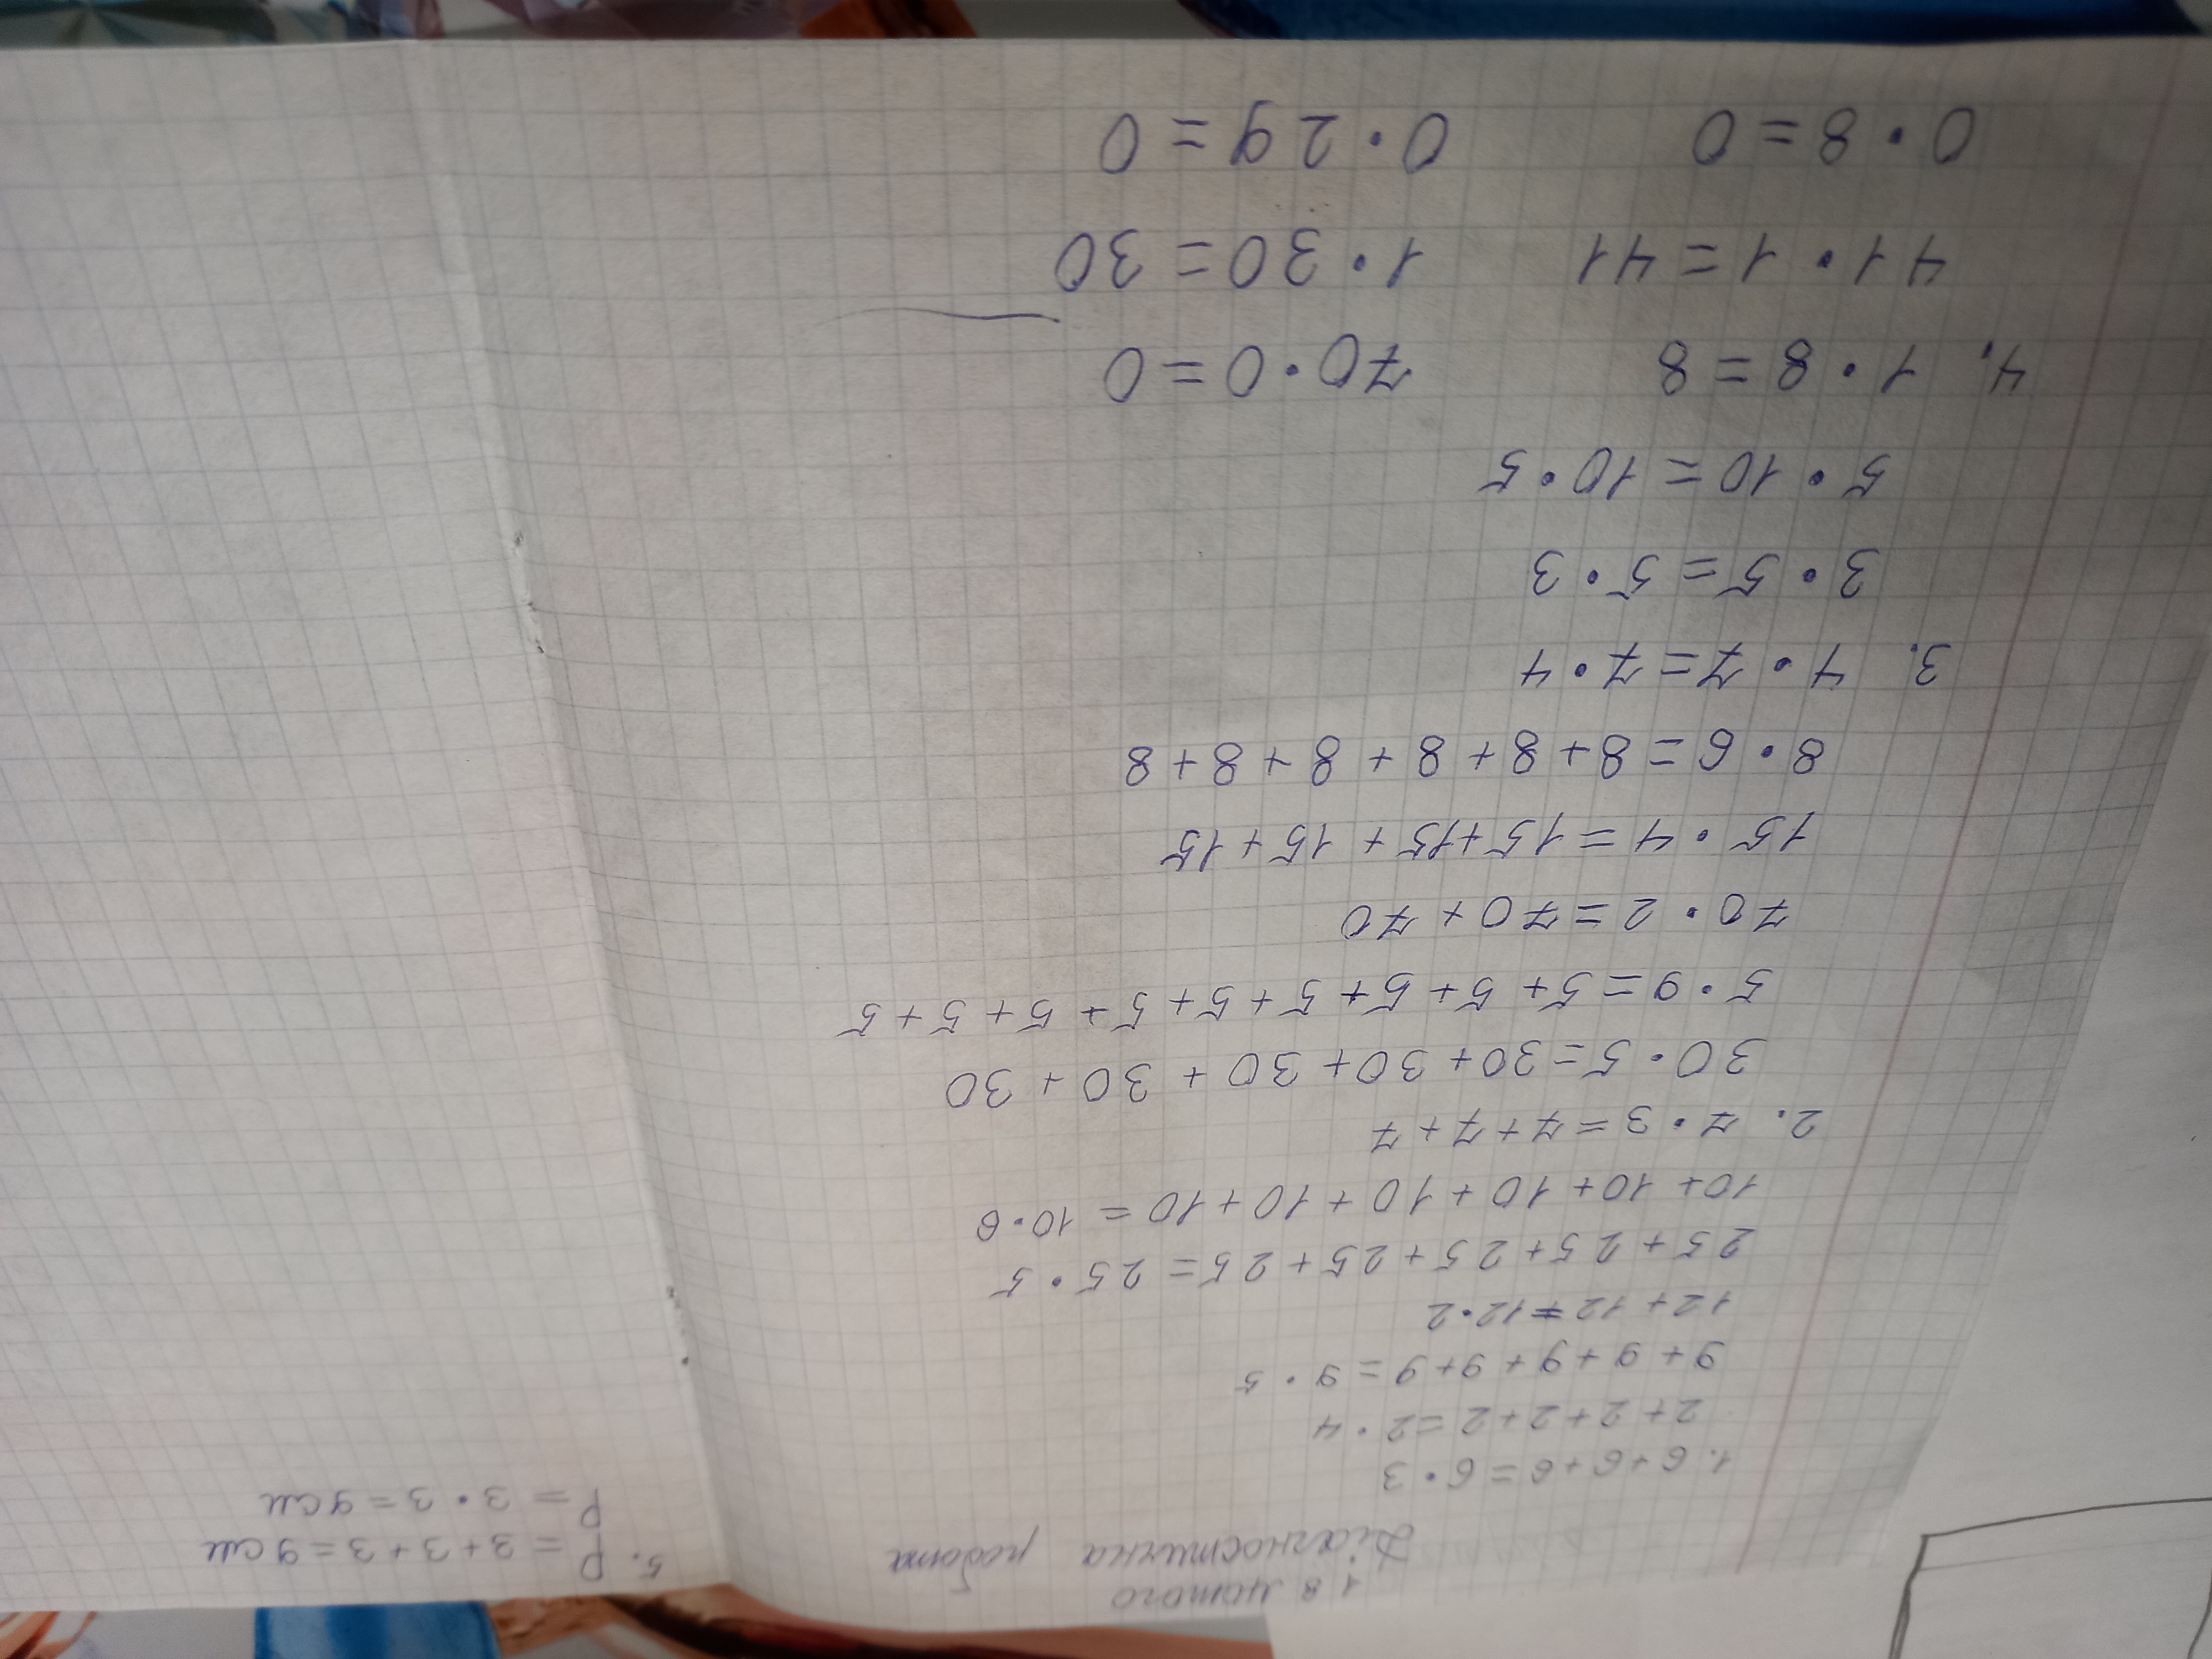 18 лютого
Діагностична робота
1. 6+6+6=6·3
2+2+2+2=2·4
9+9+9+9+9=9·5
12+12=12·2
25+25+25+25+25=25·5
10+10+10+10+10+10=10·6
2. 7·3=7+7+7
30·5=30+30+30+30+30
5·9=5+5+5+5+5+5+5+5+5
70·2=70+70
15·4=15+15+15+15
8·6=8+8+8+8+8+8
3. 4·7=7·4
3·5=5·3
5·10=10·5
4. 1·8=8 70·0=0
41·1=41 1·30=30
0·8=0 0·29=0
5. P=3+3+3=9см
P=3·3=9см